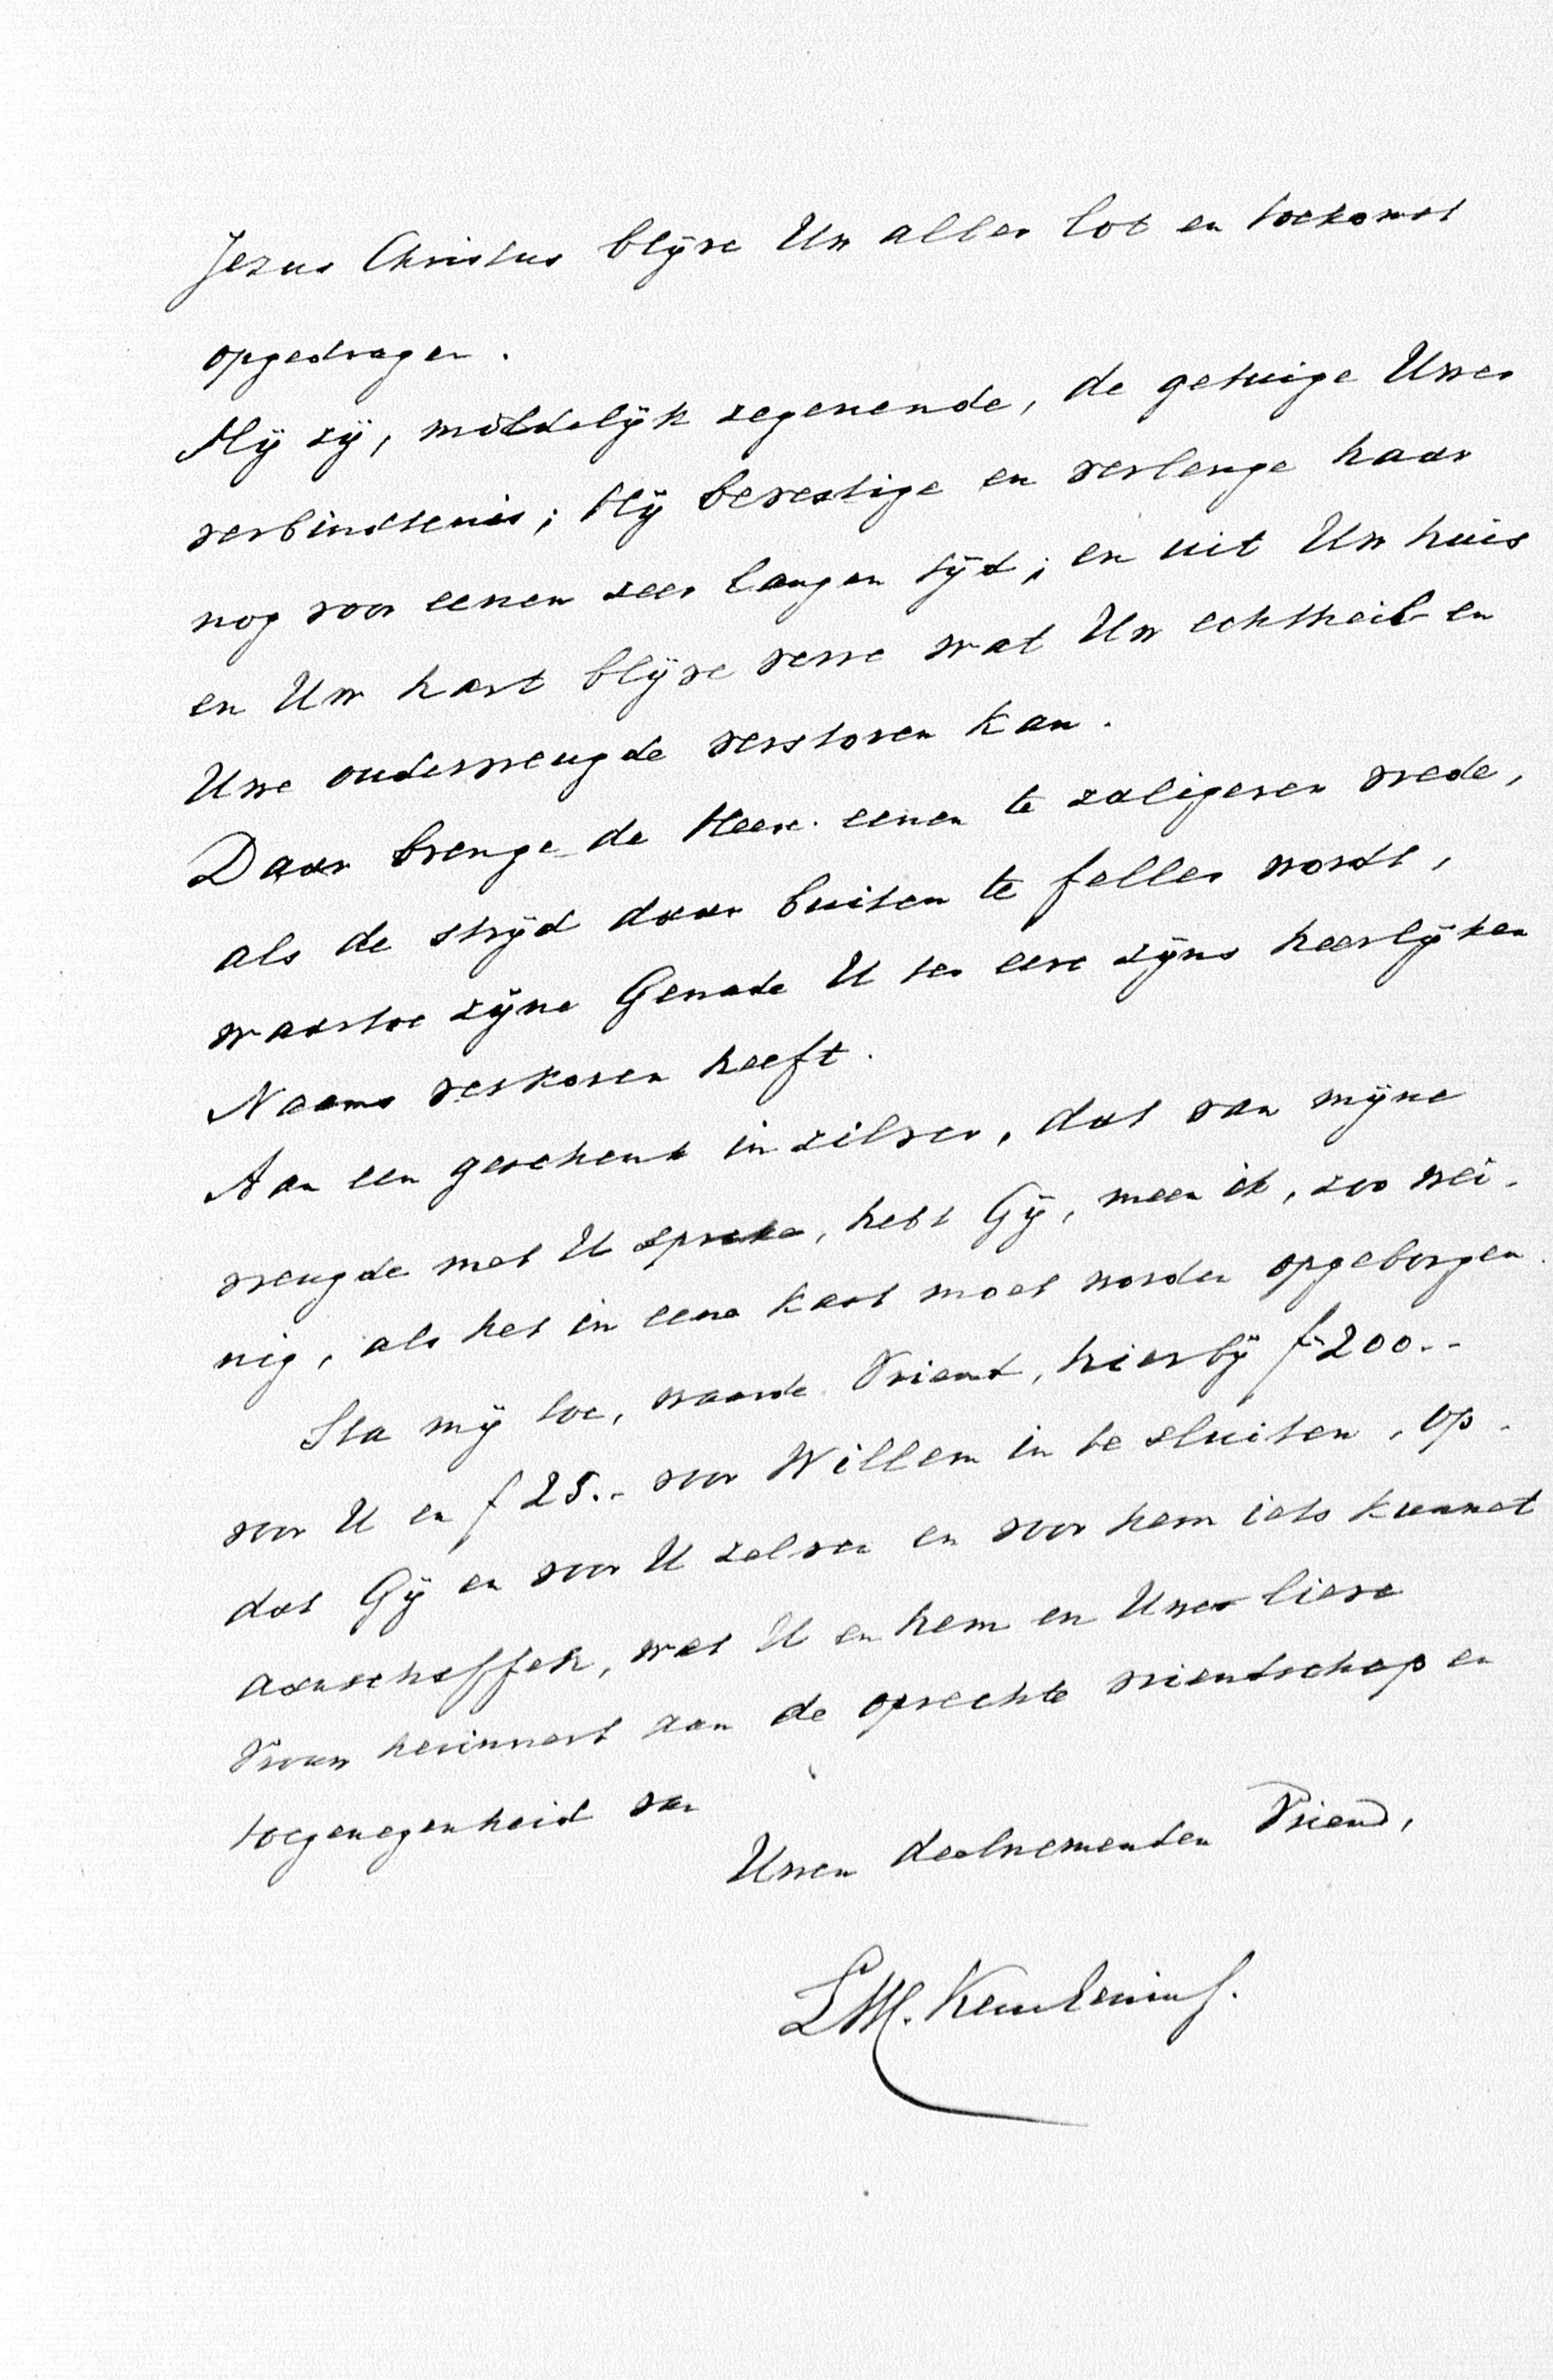 Jezus Christus blijve Uw aller lot en toekomst
opgedragen.
Hij zij, mildelijk zegenende, de getuige Uwer
verbindtenis; Hij bevestige en verlenge haar
nog voor eenen zeer langen tijd; en uit Uw huis
en Uw hart blijve verre wat Uw echtheil en
Uwe oudervreugde verstoren kan.
Daar brenge de Heere eenen te zaligeren vrede,
als de strijd daar buiten te feller wordt,
waartoe zijne Genade U ter eere zijns heerlijken
Naams verkoren heeft.
Aan een geschenk in zilver, dat van mijne
vreugde met U sprake, hebt Gij, meen ik, zoo wei-
nig, als het in eene kast moet worden opgeborgen.
Sta mij toe, waarde Vriend, hierbij f 200.-
voor U en f 25.- voor Willem in te sluiten, op-
dat Gij en voor U zelven en voor hem iets kunnet
aanschaffen, wat U en hem en Uwer lieve
Vrouw herinnert aan de oprechte vriendschap en
toegenegenheid van
Uwen deelnemenden Vriend,